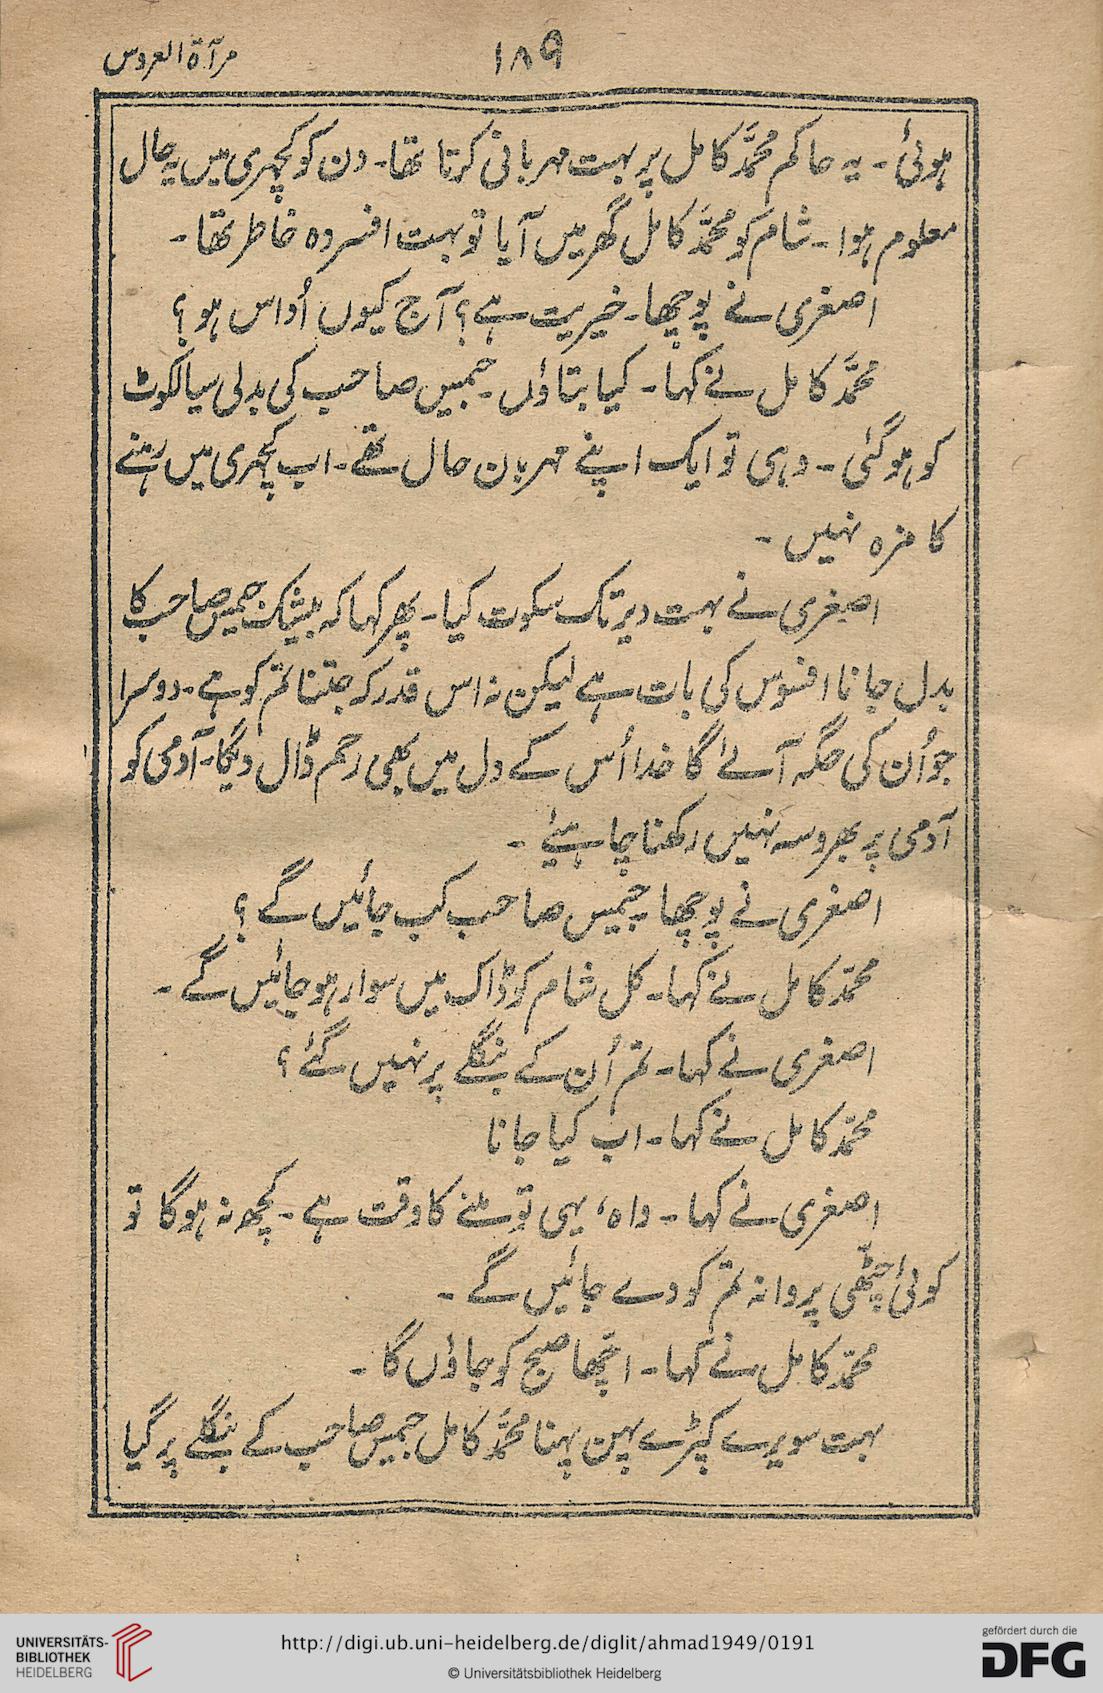 مرآۃ العروس
۱۸۹
ہوئی۔ یہ حاکم محمّد کامل پر بہت مہربانی کرتا تھا۔ دن کو کچہری میں یہ حال
معلوم ہوا۔ شام کو محمّد کامل گھر میں آیا تو بہت افسردہ خاطر تھا۔
اصغری نے پوچھا۔ خیریت ہے؟ آج کیوں اُداس ہو؟
محمّد کامل نے کہا۔ کیا بتاؤں۔ جیمس صاحب کی بدلی سیالکوٹ
کو ہو گئی۔ وہی تو ایک اپنے مہربان حال تھے۔ اب کچہری میں رہنے
کا مزہ نہیں۔
اصغری نے بہت دیر تک سکوت کیا۔ پھر کہا کہ بیشک جیمس صاحب کا
بدل جانا افسوس کی بات ہے لیکن نہ اس قدر کہ جتنا تم کو ہے۔ دوسرا
جو اُن کی جگہ آئے گا خدا اُس کے دل میں بھی رحم ڈال دیگا۔ آدمی کو
آدمی پر بھروسہ نہیں رکھنا چاہیئے۔
اصغری نے پوچھا۔ جیمس صاحب کب جائیں گے؟
محمّد کامل نے کہا۔ کل شام کو ڈاک میں سوار ہو جائیں گے۔
اصغری نے کہا۔ تم اُن کے بنگلے پر نہیں گئے؟
محمّد کامل نے کہا۔ اب کیا جانا
اصغری نے کہا۔ واہ، یہی تو ملنے کا وقت ہے۔ کچھ نہ ہوگا تو
کوئی چٹّھی پروانہ تم کو دے جائیں گے۔
محمّد کامل نے کہا۔ اچّھا صبح کو جاؤں گا۔
بہت سویرے کپڑے پہن پہنا محمّد کامل جیمس صاحب کے بنگلے پر گیا
UNIVERSITÄTS-
BIBLIOTHEK
HEIDELBERG
http://digi.ub.uni-heidelberg.de/diglit/ahmad1949/0191
© Universitätsbibliothek Heidelberg
gefördert durch die
DFG